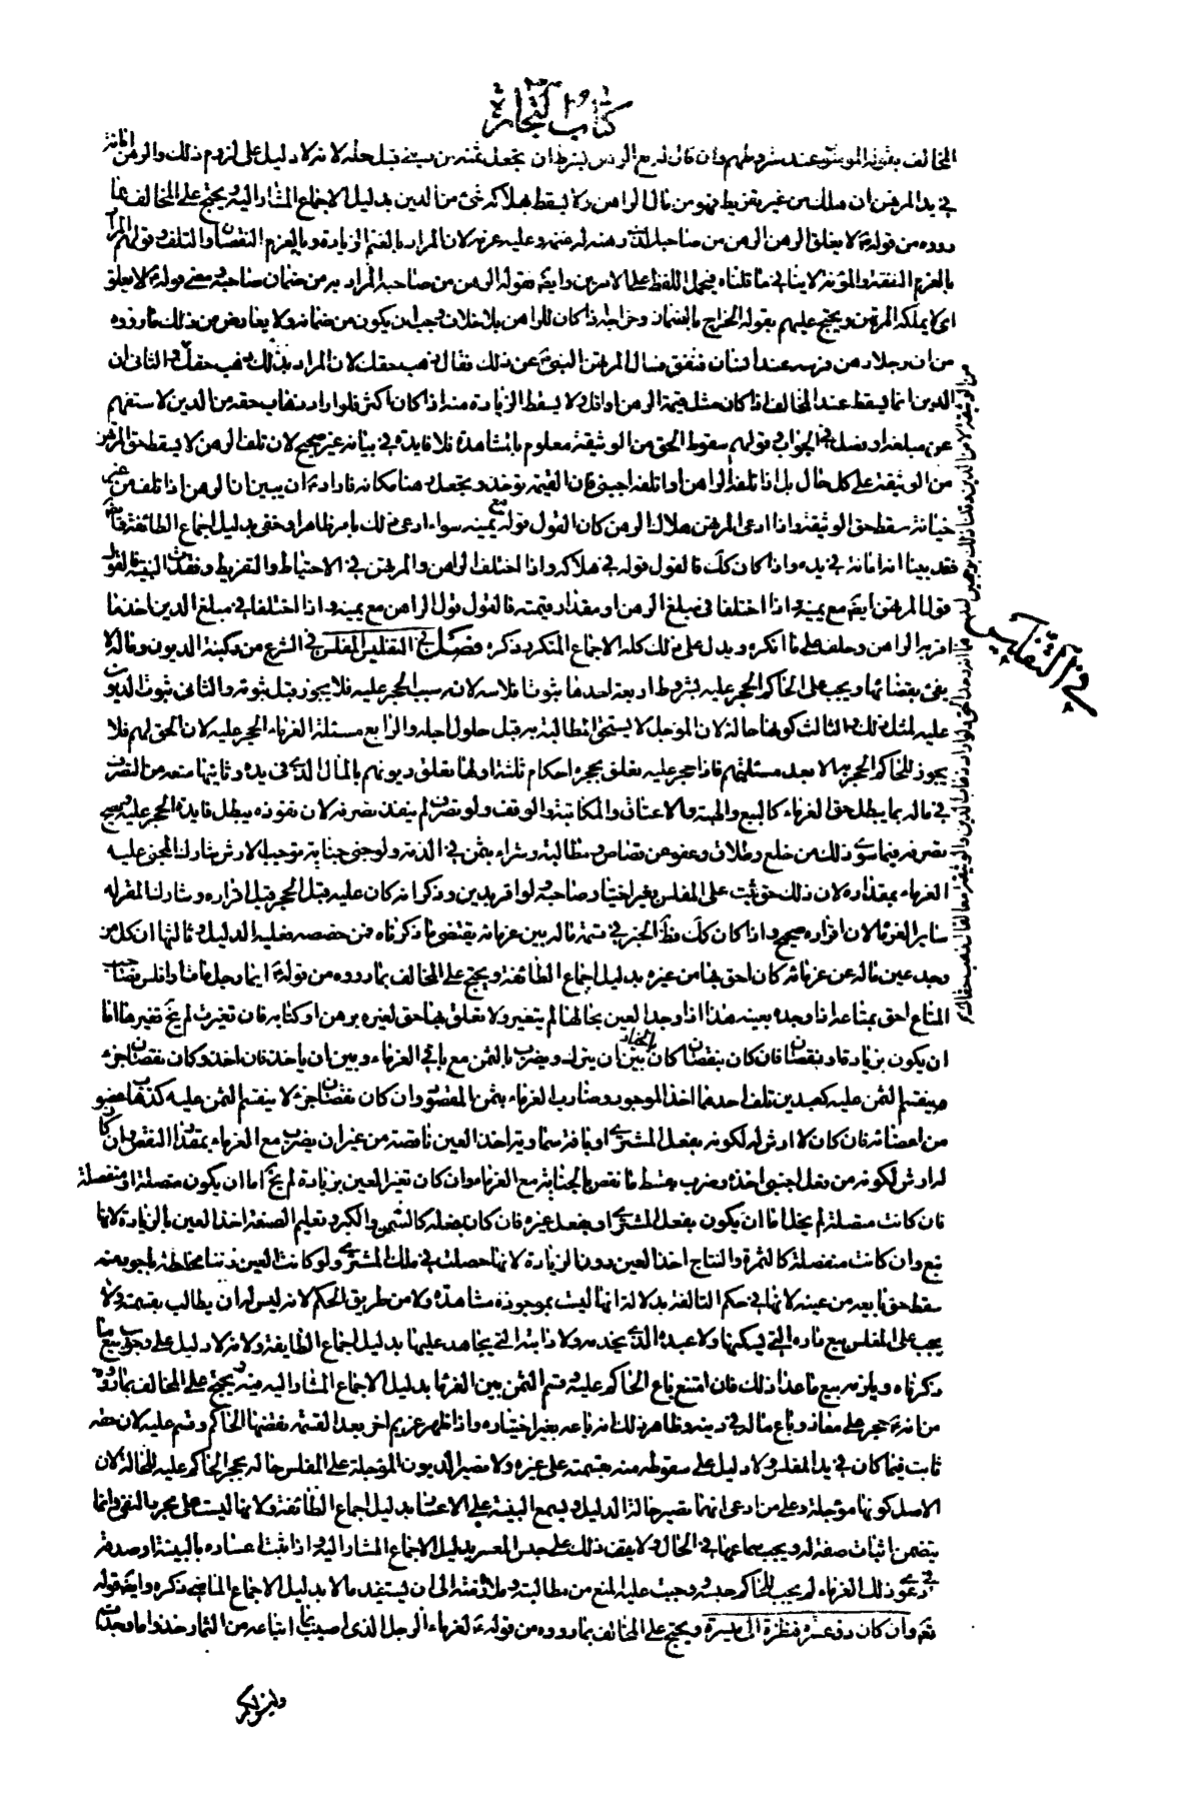 كتاب التجارة
المخالف بقوله المؤمنون عند شروطهم وان قال له بع الرهن بشرط ان تجعل ثمنه رهنا قبل حله لانه لا دليل على لزوم ذلك والرهن امانة
في يد المرتهن ان هلك من غير تفريط فهو من مال الراهن ولا يسقط بهلاكه شئ من الدين بدليل الاجماع المشار اليه ويحتج على المخالف بما
رووه من قوله ع لا يغلق الرهن الرهن من صاحبه الذي رهنه له غنمه وعليه غرمه لان المراد بالغنم الزيادة وبالغرم النقصان والتلف وقولهم المراد
بالغرم النفقة والمؤنة لا ينافي ما قلناه فيحمل اللفظ على الامرين وايضا فقوله الرهن من صاحبه المراد به من ضمان صاحبه ومعنى قوله ع لا يغلق
اي لا يملكه المرتهن ويحتج عليهم بقوله الخراج بالضمان وخراجه اذا كان للراهن بلا خلاف وجب ان يكون من ضمانه ولا يعارض من ذلك ما رووه
من ان رجلا رهن فرسه عند انسان فنفق فسال المرتهن النبي ص عن ذلك فقال ذهب حقك لان المراد بذلك ذهب حقك في الثاني ان
الدين انما يسقط عند المخالف اذا كان مثل قيمة الرهن او اقل ولا يسقط الزيادة منه اذا كان اكثر فلو اراد ذهاب حقه من الدين لاستفهم
عن مبلغه او فصل في الجواب وقولهم سقوط الحق من الوثيقة معلوم بالمشاهدة فلا فايدة في بيانه غير صحيح لان تلف الرهن لا يسقط حق المرتهن
من الوثيقة على كل حال بل اذا تلفه الراهن او اتلفه اجنبي فان القيمة تؤخذ وتجعل رهنا مكانه فاراد ع ان يبين ان الرهن اذا تلف من غير
جناية سقط حق الوثيقة واذا ادعى المرتهن هلاك الرهن كان القول قوله مع يمينه سواء ادعى ذلك بامر ظاهر او خفي بدليل اجماع الطائفة وايضا
فقد بينا انه امانة في يده واذا كان كك فالقول قوله في هلاكه واذا اختلف الراهن والمرتهن في الاحتياط والتفريط وفقدت البينة فالقول
قول المرتهن ايضا مع يمينه واذا اختلفا في مبلغ الرهن او مقدار قيمته فالقول قول الراهن مع يمينه واذا اختلفا في مبلغ الدين اخذ ما
اقر به الراهن وحلف على ما انكره ويدل على ذلك كله الاجماع المتكرر ذكره فصل في التفليس المفلس في الشرع من ركبته الديون وماله لا
يفي بقضائها ويجب على الحاكم الحجر عليه بشروط اربعة احدها ثبوت افلاسه لانه سبب الحجر عليه فلا يجوز قبل ثبوته والثاني ثبوت الديون
عليه لمثل ذلك الثالث كونها حالة لان المؤجل لا يستحق المطالبة به قبل حلول اجله والرابع مسئلة الغرماء الحجر عليه لان الحق لهم فلا
يجوز للحاكم الحجر الا بعد مسئلتهم فاذا حجر عليه تعلق بحجره احكام ثلثة اولها تعلق ديونهم بالمال الذي في يده وثانيها منعه من التصرف
في ماله بما يبطل حق الغرماء كالبيع والهبة والاعتاق والمكاتبة والوقف ولو تصرف لم ينفذ تصرفه لان نفوذه يبطل فايدة الحجر عليه ويصح
تصرفه فيما سوى ذلك من خلع وطلاق وعفو عن قصاص ومطالبة وشراء بثمن في الذمة ولو جنى جناية توجب الارش شارك المجني عليه
الغرماء بمقداره لان ذلك حق ثبت على المفلس بغير اختيار صاحبه ولو اقر بدين وذكر انه كان عليه قبل الحجر قبل اقراره وشارك المقر له
ساير الغرماء لان اقراره صحيح واذا كان كك فظ الخبر في قسمة ماله بين غرمائه يقتضي ما ذكرناه فمن خصصه فعليه الدليل وثالثها ان كل من
وجد عين ماله من غرمائه كان احق بها من غيره بدليل اجماع الطائفة ويحتج على المخالف بما رووه من قوله ع ايما رجل مات او افلس فصاحب
المتاع احق بمتاعه اذا وجده بعينه هذا اذا وجد العين بحالها لم يتغير ولا تعلق بها حق لغيره برهن او كتابة فان تغيرت لم يخل تغيرها اما
ان يكون بزيادة او بنقصان فان كان بنقصان كان بالخيار بين ان يترك ويضرب بالثمن مع باقي الغرماء وبين ان ياخذ فان اخذ وكان نقصان جزء
ينقسم الثمن عليه كعبدين تلف احدهما اخذ الموجود وضارب الغرماء بثمن المفقود وان كان نقصان جزء لا ينقسم الثمن عليه كذهاب عضو
من اعضائه فان كان لا ارش له لكونه بفعل المشتري او بافة سماوية اخذ العين ناقصة من غير ان يضرب مع الغرماء بمقدار النقص وان كان
له ارش لكونه من فعل اجنبي اخذه وضرب بقسط ما نقص بالجناية مع الغرماء وان كان تغير العين بزيادة لم يخل اما ان يكون متصلة او منفصلة
فان كانت متصلة لم يخل اما ان يكون بفعل المشتري او بفعل غيره فان كان بفعله كالسمن والكبر وتعليم الصنعة اخذ العين بالزيادة لانها
تبع وان كانت منفصلة كالثمرة والنتاج اخذ العين دون الزيادة لانها حصلت في ملك المشتري ولو كانت العين زيتا فخلطه باجود منه
سقط حق بايعه من عينه لانها في حكم التالفة بدلالة انها ليست بموجودة مشاهدة ولا من طريق الحكم لانه ليس له ان يطالب بقسمته ولا
يجب على المفلس بيع داره التي يسكنها ولا عبده الذي يخدمه ولا دابته التي يجاهد عليها بدليل اجماع الطايفة ولانه لا دليل على وجوب بيع ما
ذكرناه ويلزمه بيع ما عدا ذلك فان امتنع باع الحاكم عليه وقسم الثمن بين الغرماء بدليل الاجماع المشار اليه فيه ويحتج على المخالف بما رووه
من انه ع حجر على معاذ وباع ماله في دينه وظاهر ذلك انه باعه بغير اختياره واذا ظهر غريم اخر بعد القسمة نقضها الحاكم وقسم عليه لان حقه
ثابت فيما كان في يد المفلس ولا دليل على سقوطه منه بقسمته على غيره ولا تصير الديون المؤجلة على المفلس حالة بحجر الحاكم عليه للحالة لان
الاصل كونها مؤجلة وعلى من ادعى انها تصير حالة الدليل ويسمع البينة على الاعسار بدليل اجماع الطائفة ولانها ليست على مجرد النفي وانما
يتضمن اثبات صفة له ويجب سماعها في الحال ولا يقف ذلك على حبس المعسر بدليل الاجماع المشار اليه واذا ثبت اعساره بالبينة او صدقه
في دعوى ذلك الغرماء لم يجب للحاكم حبسه ووجب عليه المنع من مطالبته وملازمته الى ان يستفيد مالا بدليل الاجماع الماضي ذكره وايضا قوله
تعالى وان كان ذو عسرة فنظرة الى ميسرة ويحتج على المخالف بما رووه من قوله ع لغرماء الرجل الذي اصيب بما ابتاعه من الثمار خذوا ما وجدتم
وليس لكم
في التفليس
من الوثيقة لا من الدين وقلنا ذلك بوجهين احدهما انه وحد الحق ولو اراد ذهاب الدين والوثيقة معا لقال ذهب حقاك